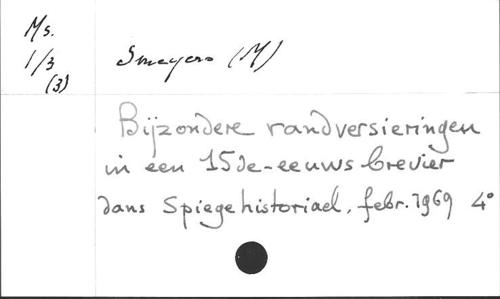 Ms.
1/3 Smeyers (M)
(3)
Bijzondere randversieringen
in een 15de-eeuws brevier
dans Spiegehistoriael, febr. 1969 4°